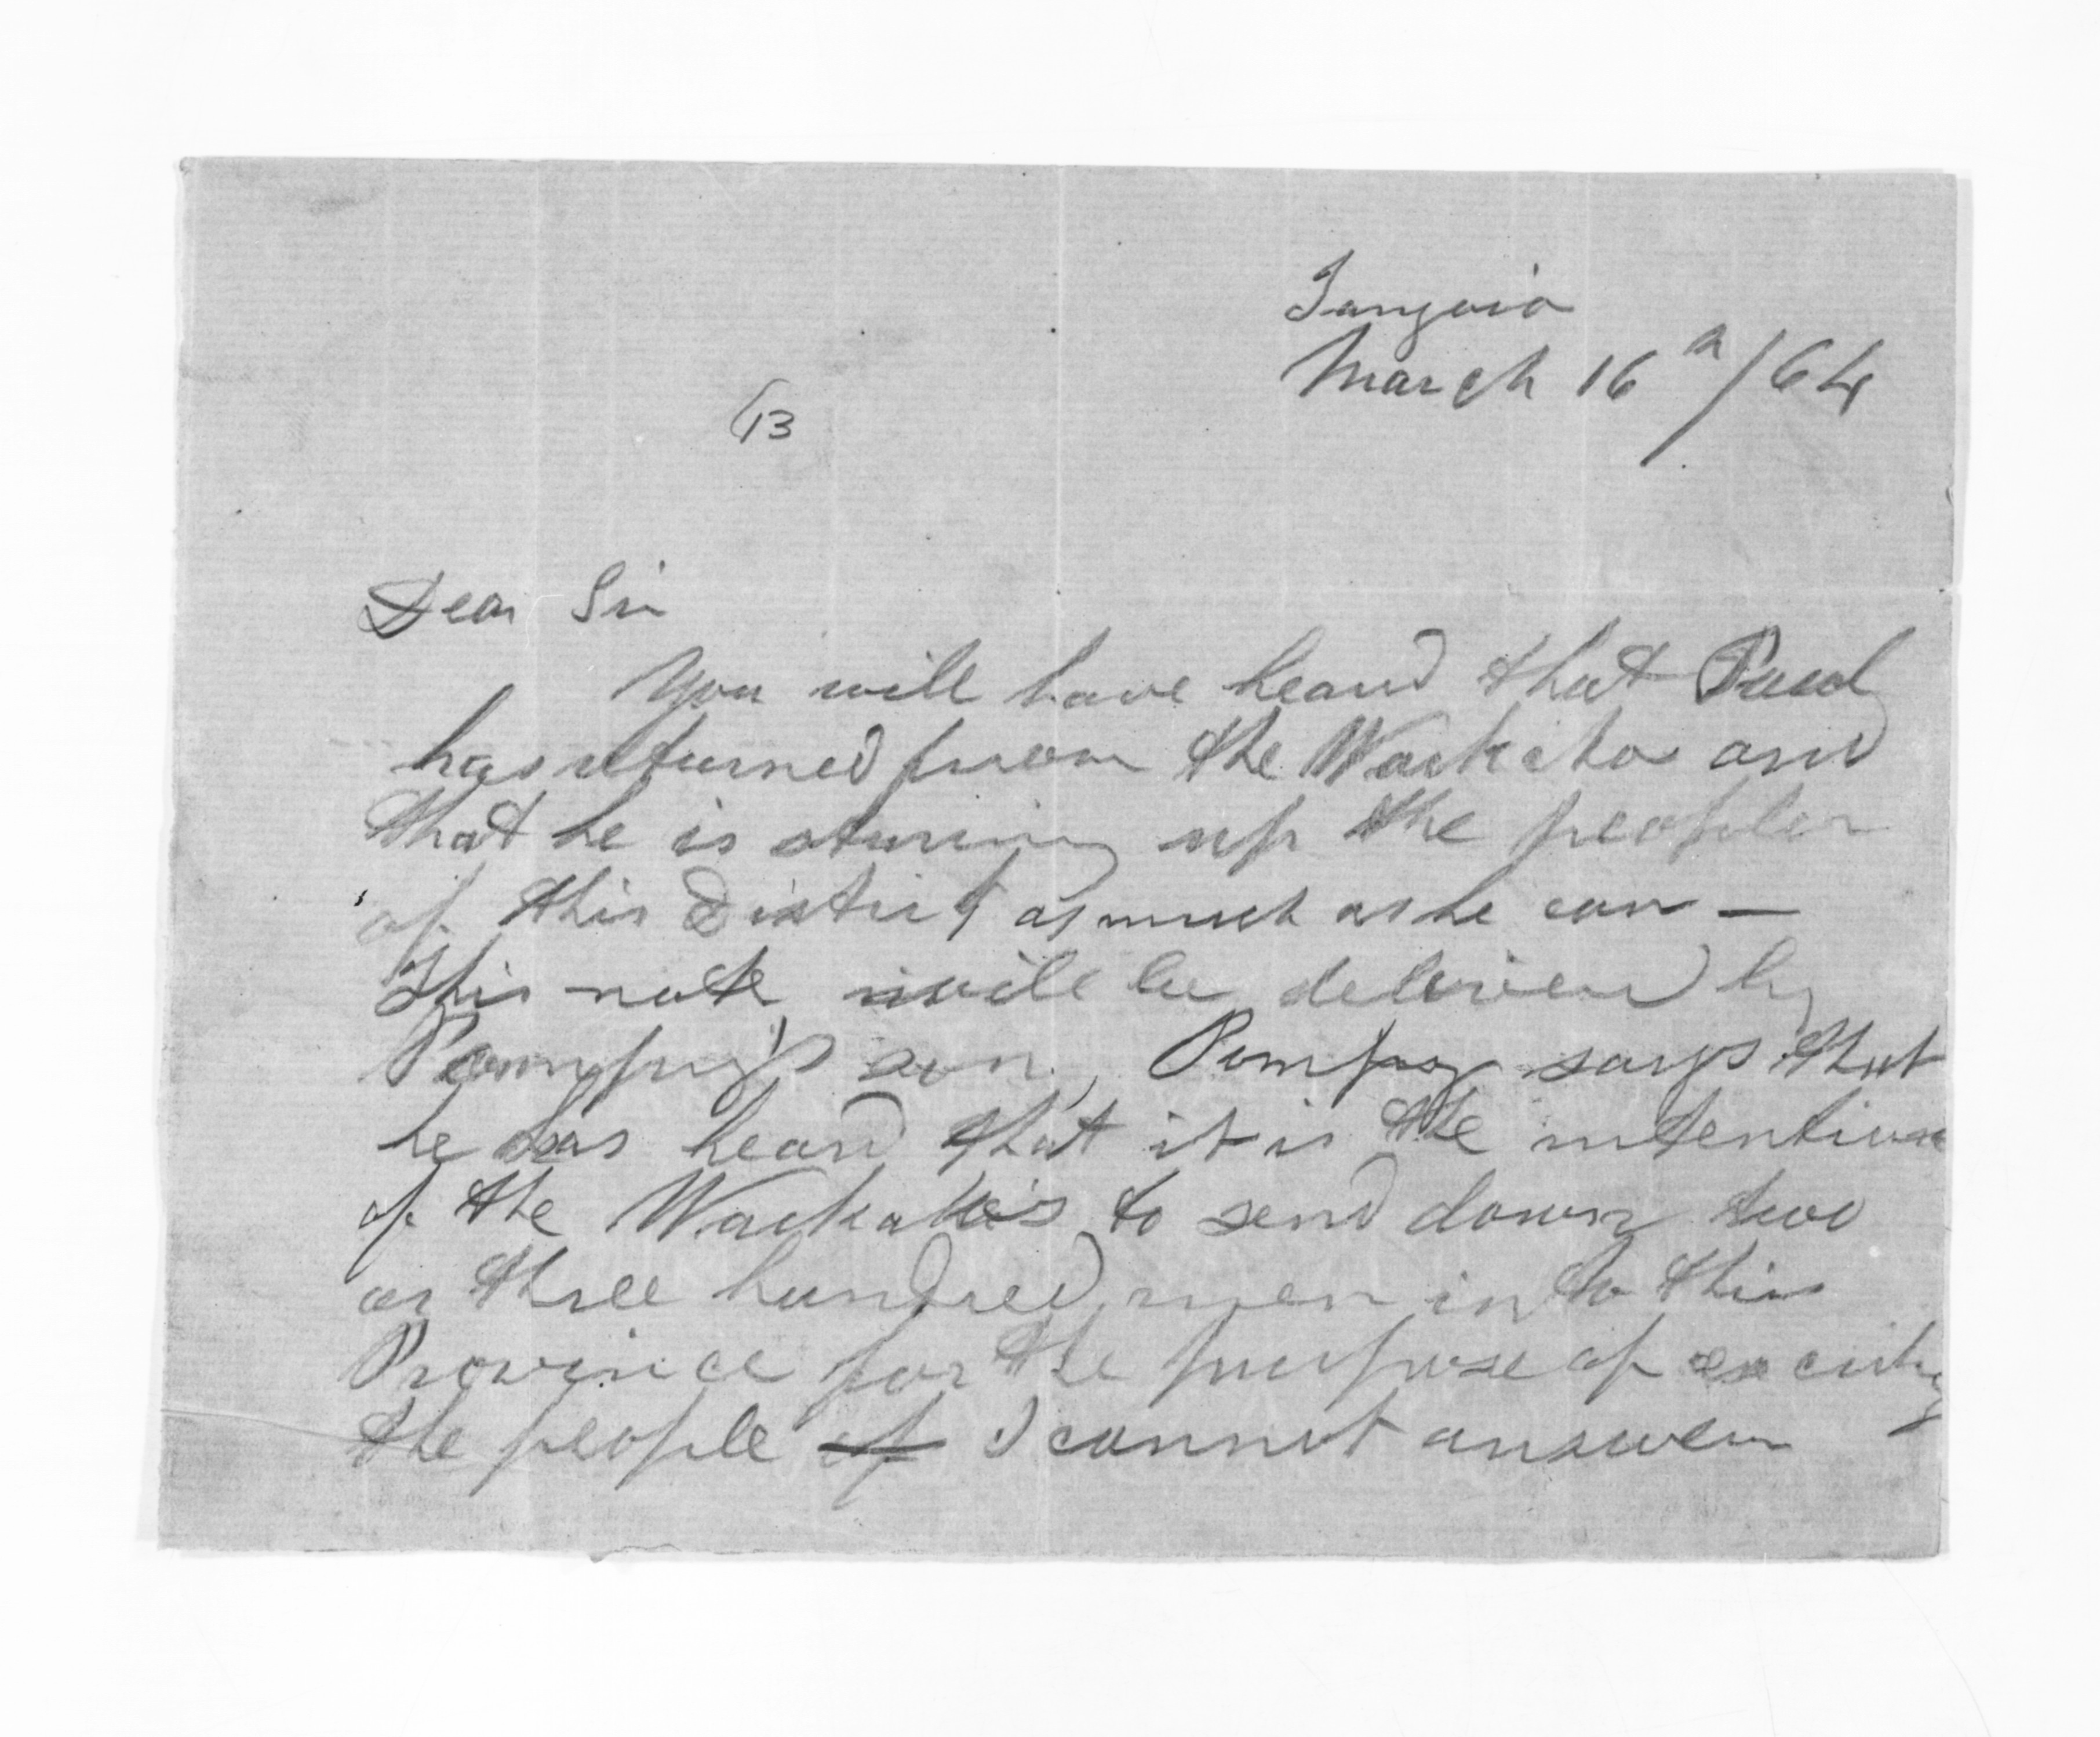 Tangoio
March 16th/64
13
Dear Sir
You will have heard that Paul
has returned from the Waikato and
that he is stirring up the people
of this District as much as he can —
This note will be delivered by
Pompey's son, Pompey says that
he has heard that it is the intention
of the Waikato's to send down two
or three hundred men into this
Province for the purpose of exciting
the people of I cannot answer